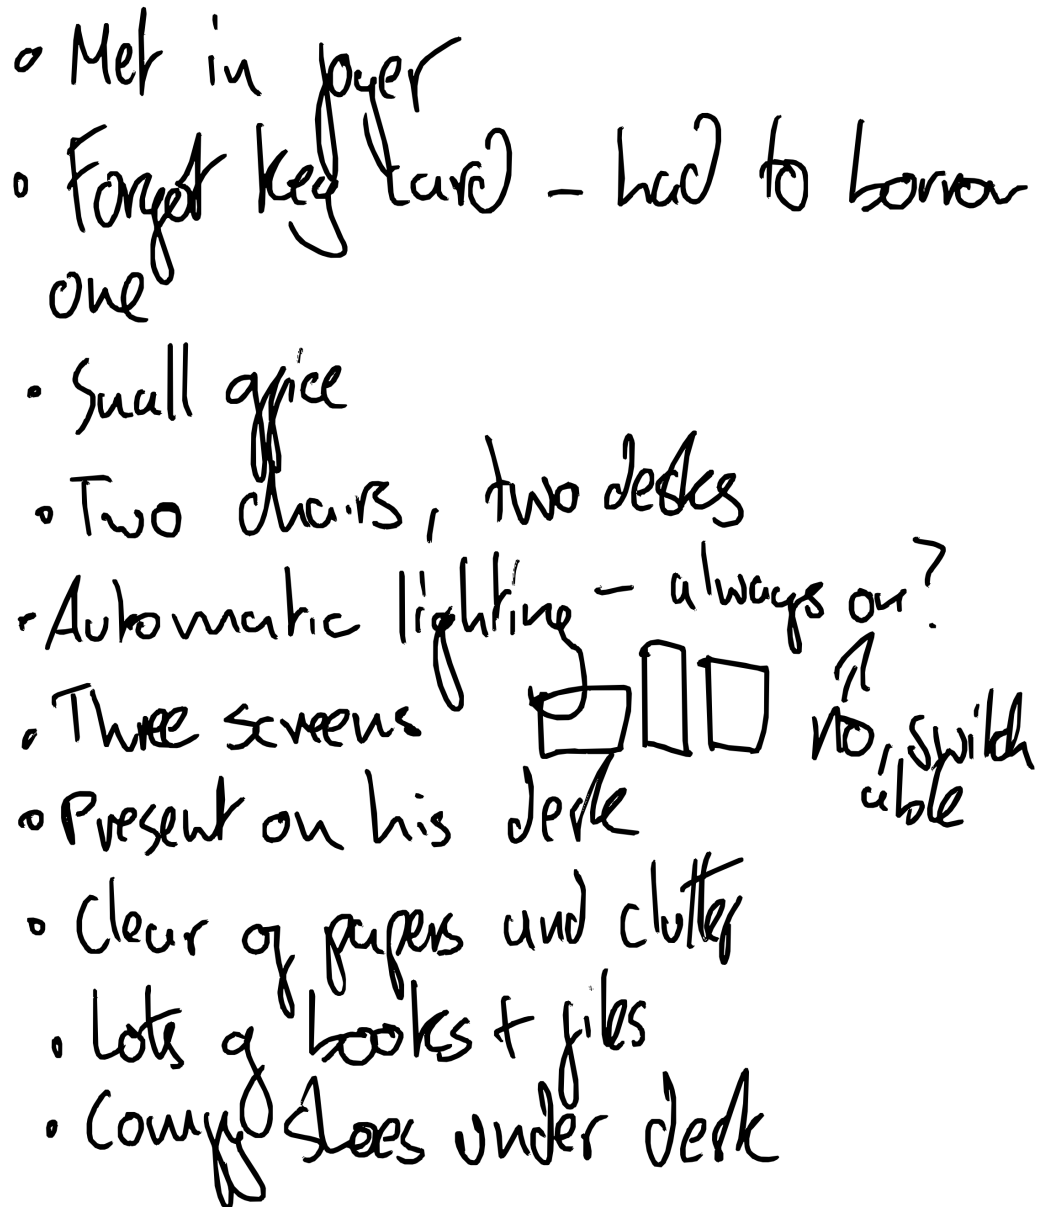 • Met in foyer
• Forgot key card – had to borrow
one
• Small office
• Two chairs, two desks
• Automatic lighting – always on?
• Three screens
no, switch
able
• Present on his desk
• Clear of papers and clutter
• Lots of books + files
• Comfy shoes under desk